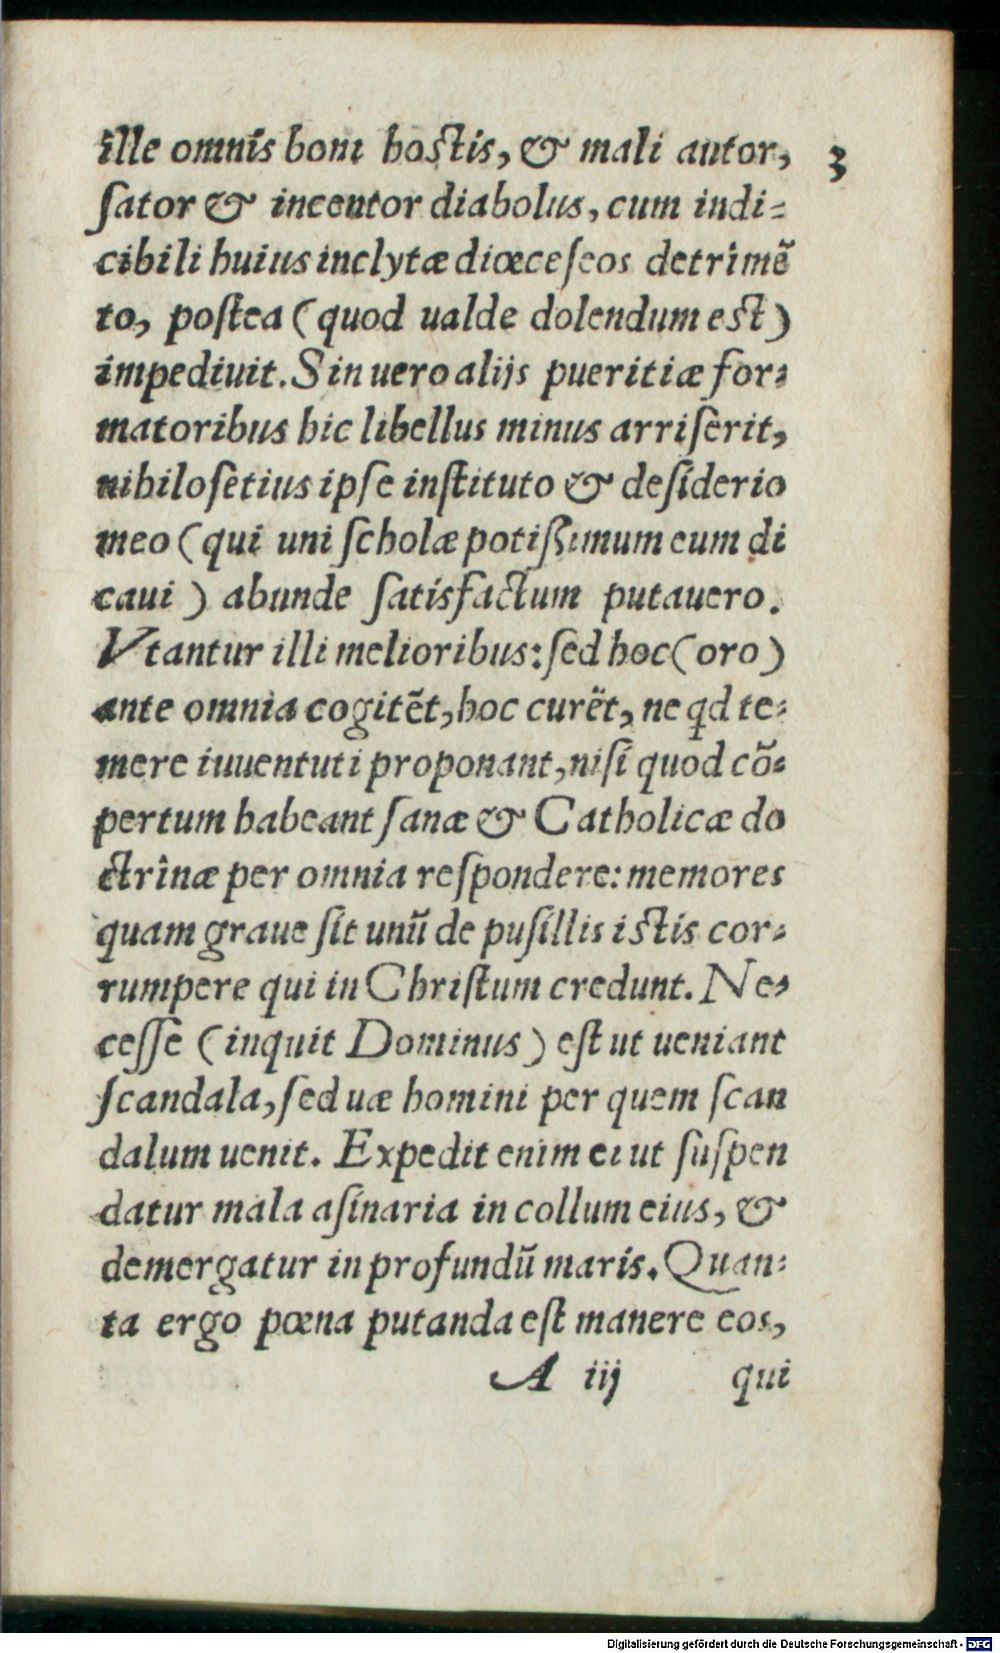 ille omnis boni hostis, & mali autor, 3
sator & incentor diabolus, cum indi-
cibili huius inclytæ diœceseos detrimẽ
to, postea (quod ualde dolendum est)
impediuit. Sin uero alijs pueritiæ for-
matoribus hic libellus minus arriserit,
nihilosetius ipse instituto & desiderio
meo (qui uni scholæ potißimum eum di
caui) abunde satisfactum putauero.
Vtantur illi melioribus: sed hoc (oro)
ante omnia cogitẽt, hoc curẽt, ne qd te-
mere iuuentuti proponant, nisi quod cõ-
pertum habeant sanæ & Catholicæ do
ctrinæ per omnia respondere: memores
quam graue sit unũ de pusillis istis cor-
rumpere qui in Christum credunt. Ne-
cesse (inquit Dominus) est ut ueniant
scandala, sed uæ homini per quem scan
dalum uenit. Expedit enim ei ut suspen
datur mala asinaria in collum eius, &
demergatur in profundũ maris. Quan-
ta ergo pœna putanda est manere eos,
A iij qui
Digitalisierung gefördert durch die Deutsche Forschungsgemeinschaft - DFG